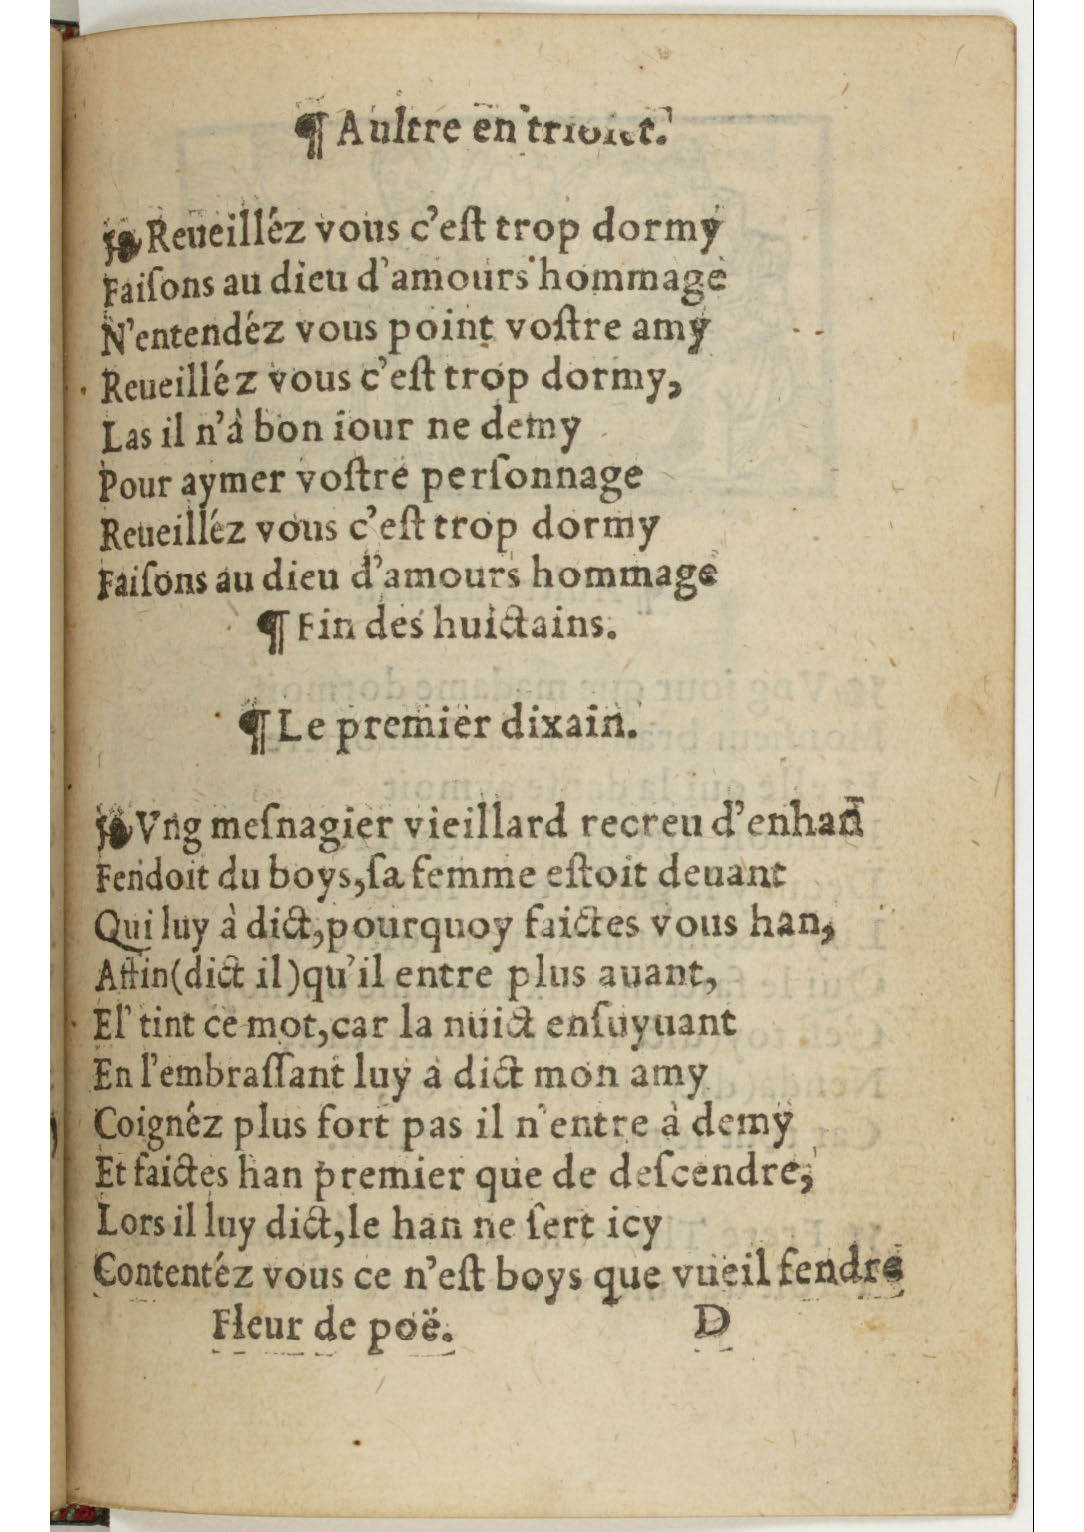 ¶ Aultre en triolet.
Reueilléz vous c'eſt trop dormy
Faiſons au dieu d'amours hommage
N'entendéz vous point voſtre amy
Reueilléz vous c'eſt trop dormy,
Las il n'à bon iour ne demy
Pour aymer voſtre perſonnage
Reueilléz vous c'eſt trop dormy
Faiſons au dieu d'amours hommage
¶ Fin des huictains.
¶ Le premier dixain.
Vng meſnagier vieillard recreu d'enhan̄
Fendoit du boys, ſa femme eſtoit deuant
Qui luy à dict, pourquoy faictes vous han,
Affin (dict il) qu'il entre plus auant,
El' tint ce mot, car la nuict enſuyuant
En l'embraſſant luy à dict mon amy
Coignéz plus fort pas il n'entre à demy
Et faictes han premier que de deſcendre,
Lors il luy dict, le han ne ſert icy
Contentéz vous ce n'eſt boys que vueil fendre
Fleur de poë. D